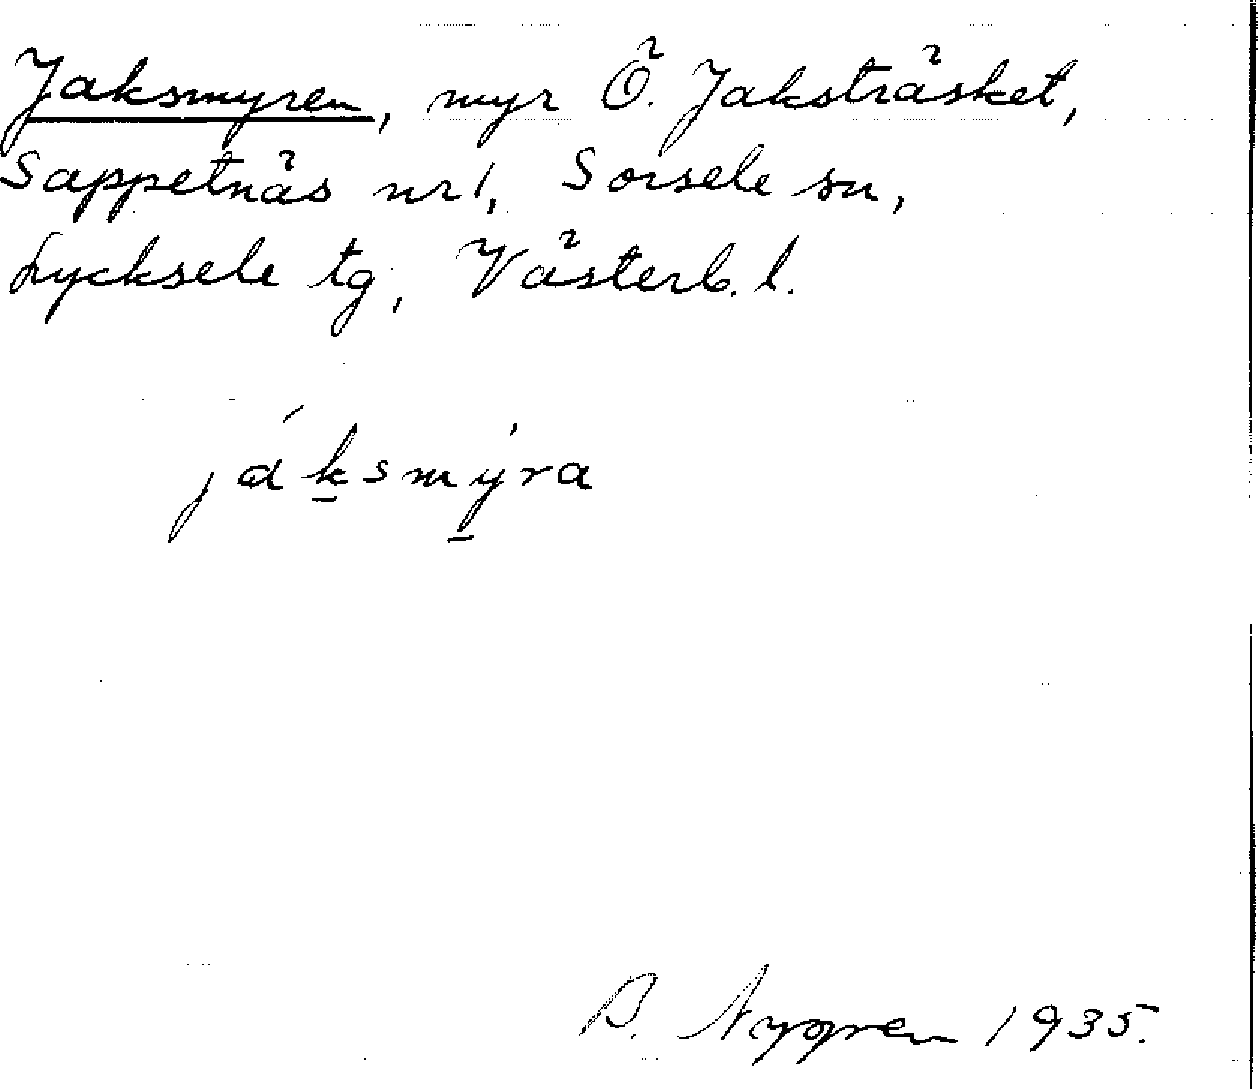 Jaksmyren, myr Ö. Jaksträsket,
Sappetnäs nr 1, Sorsele sn,
Lycksele tg, Västerb. l.
jáksmýra
B. Nygren 1935.